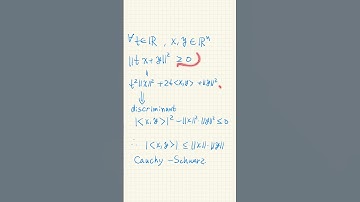 ∀t∈ℝ , x,y ∈ℝⁿ
||t x+y||² ≥ 0
t²||x||² + 2t<x,y> + ||y||²
discriminant
|<x,y>|² - ||x||² ||y||² ≤ 0
∴ |<x,y>| ≤ ||x||·||y||
Cauchy-Schwarz